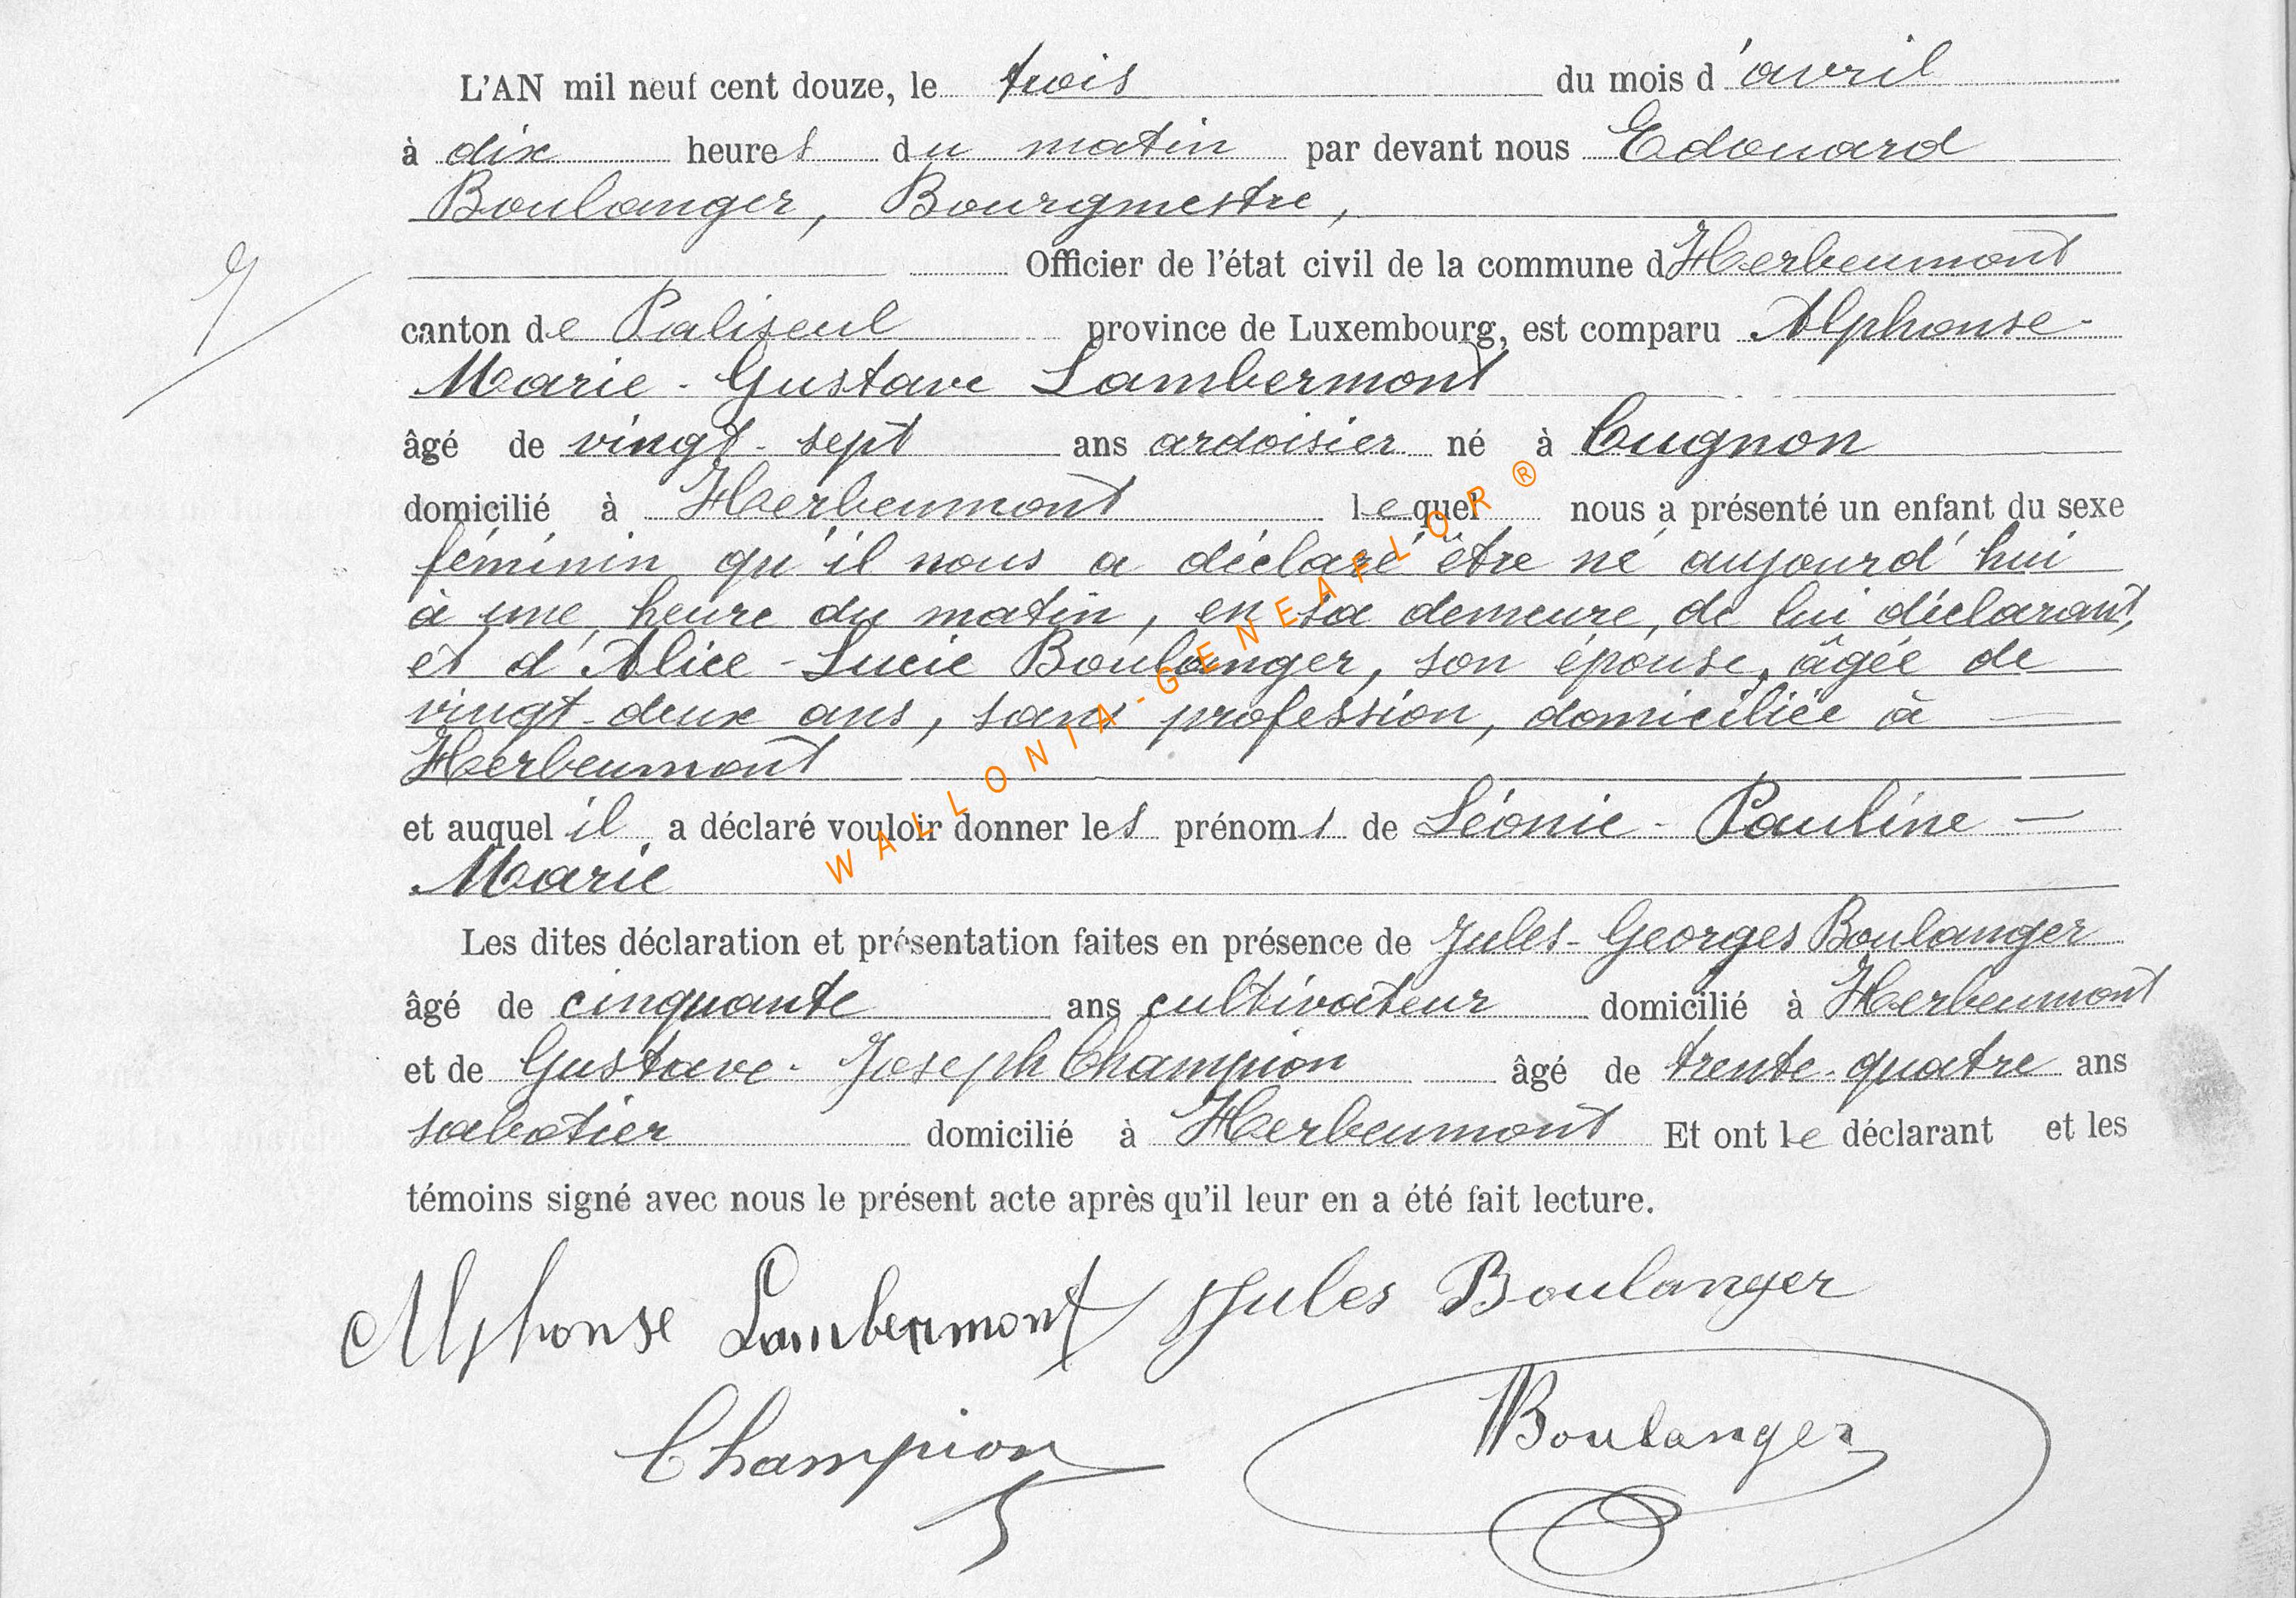 L'AN mil neuf cent douze, le trois du mois d'avril
à dix heures du matin par devant nous Edouard
Boulanger, Bourgmestre,
Officier de l'état civil de la commune d'Herbeumont
canton de Paliseul province de Luxembourg, est comparu Alphonse-
Marie-Gustave Lambermont
âgé de vingt-sept ans ardoisier né à Cugnon
domicilié à Herbeumont lequel nous a présenté un enfant du sexe
féminin qu'il nous a déclaré être né aujourd'hui
à une heure du matin, en sa demeure, de lui déclarant,
et d'Alice-Lucie Boulanger, son épouse, âgée de
vingt-deux ans, sans profession, domiciliée à
Herbeumont
et auquel il a déclaré vouloir donner les prénoms de Léonie-Pauline-
Marie
Les dites déclaration et présentation faites en présence de Jules-Georges Boulanger
âgé de cinquante ans cultivateur domicilié à Herbeumont
et de Gustave-Joseph Champion âgé de trente-quatre ans
sabotier domicilié à Herbeumont Et ont le déclarant et les
témoins signé avec nous le présent acte après qu'il leur en a été fait lecture.
Alphonse Lambermont Jules Boulanger
Champion Boulanger
WALLONIA-GENEAFLOR ®